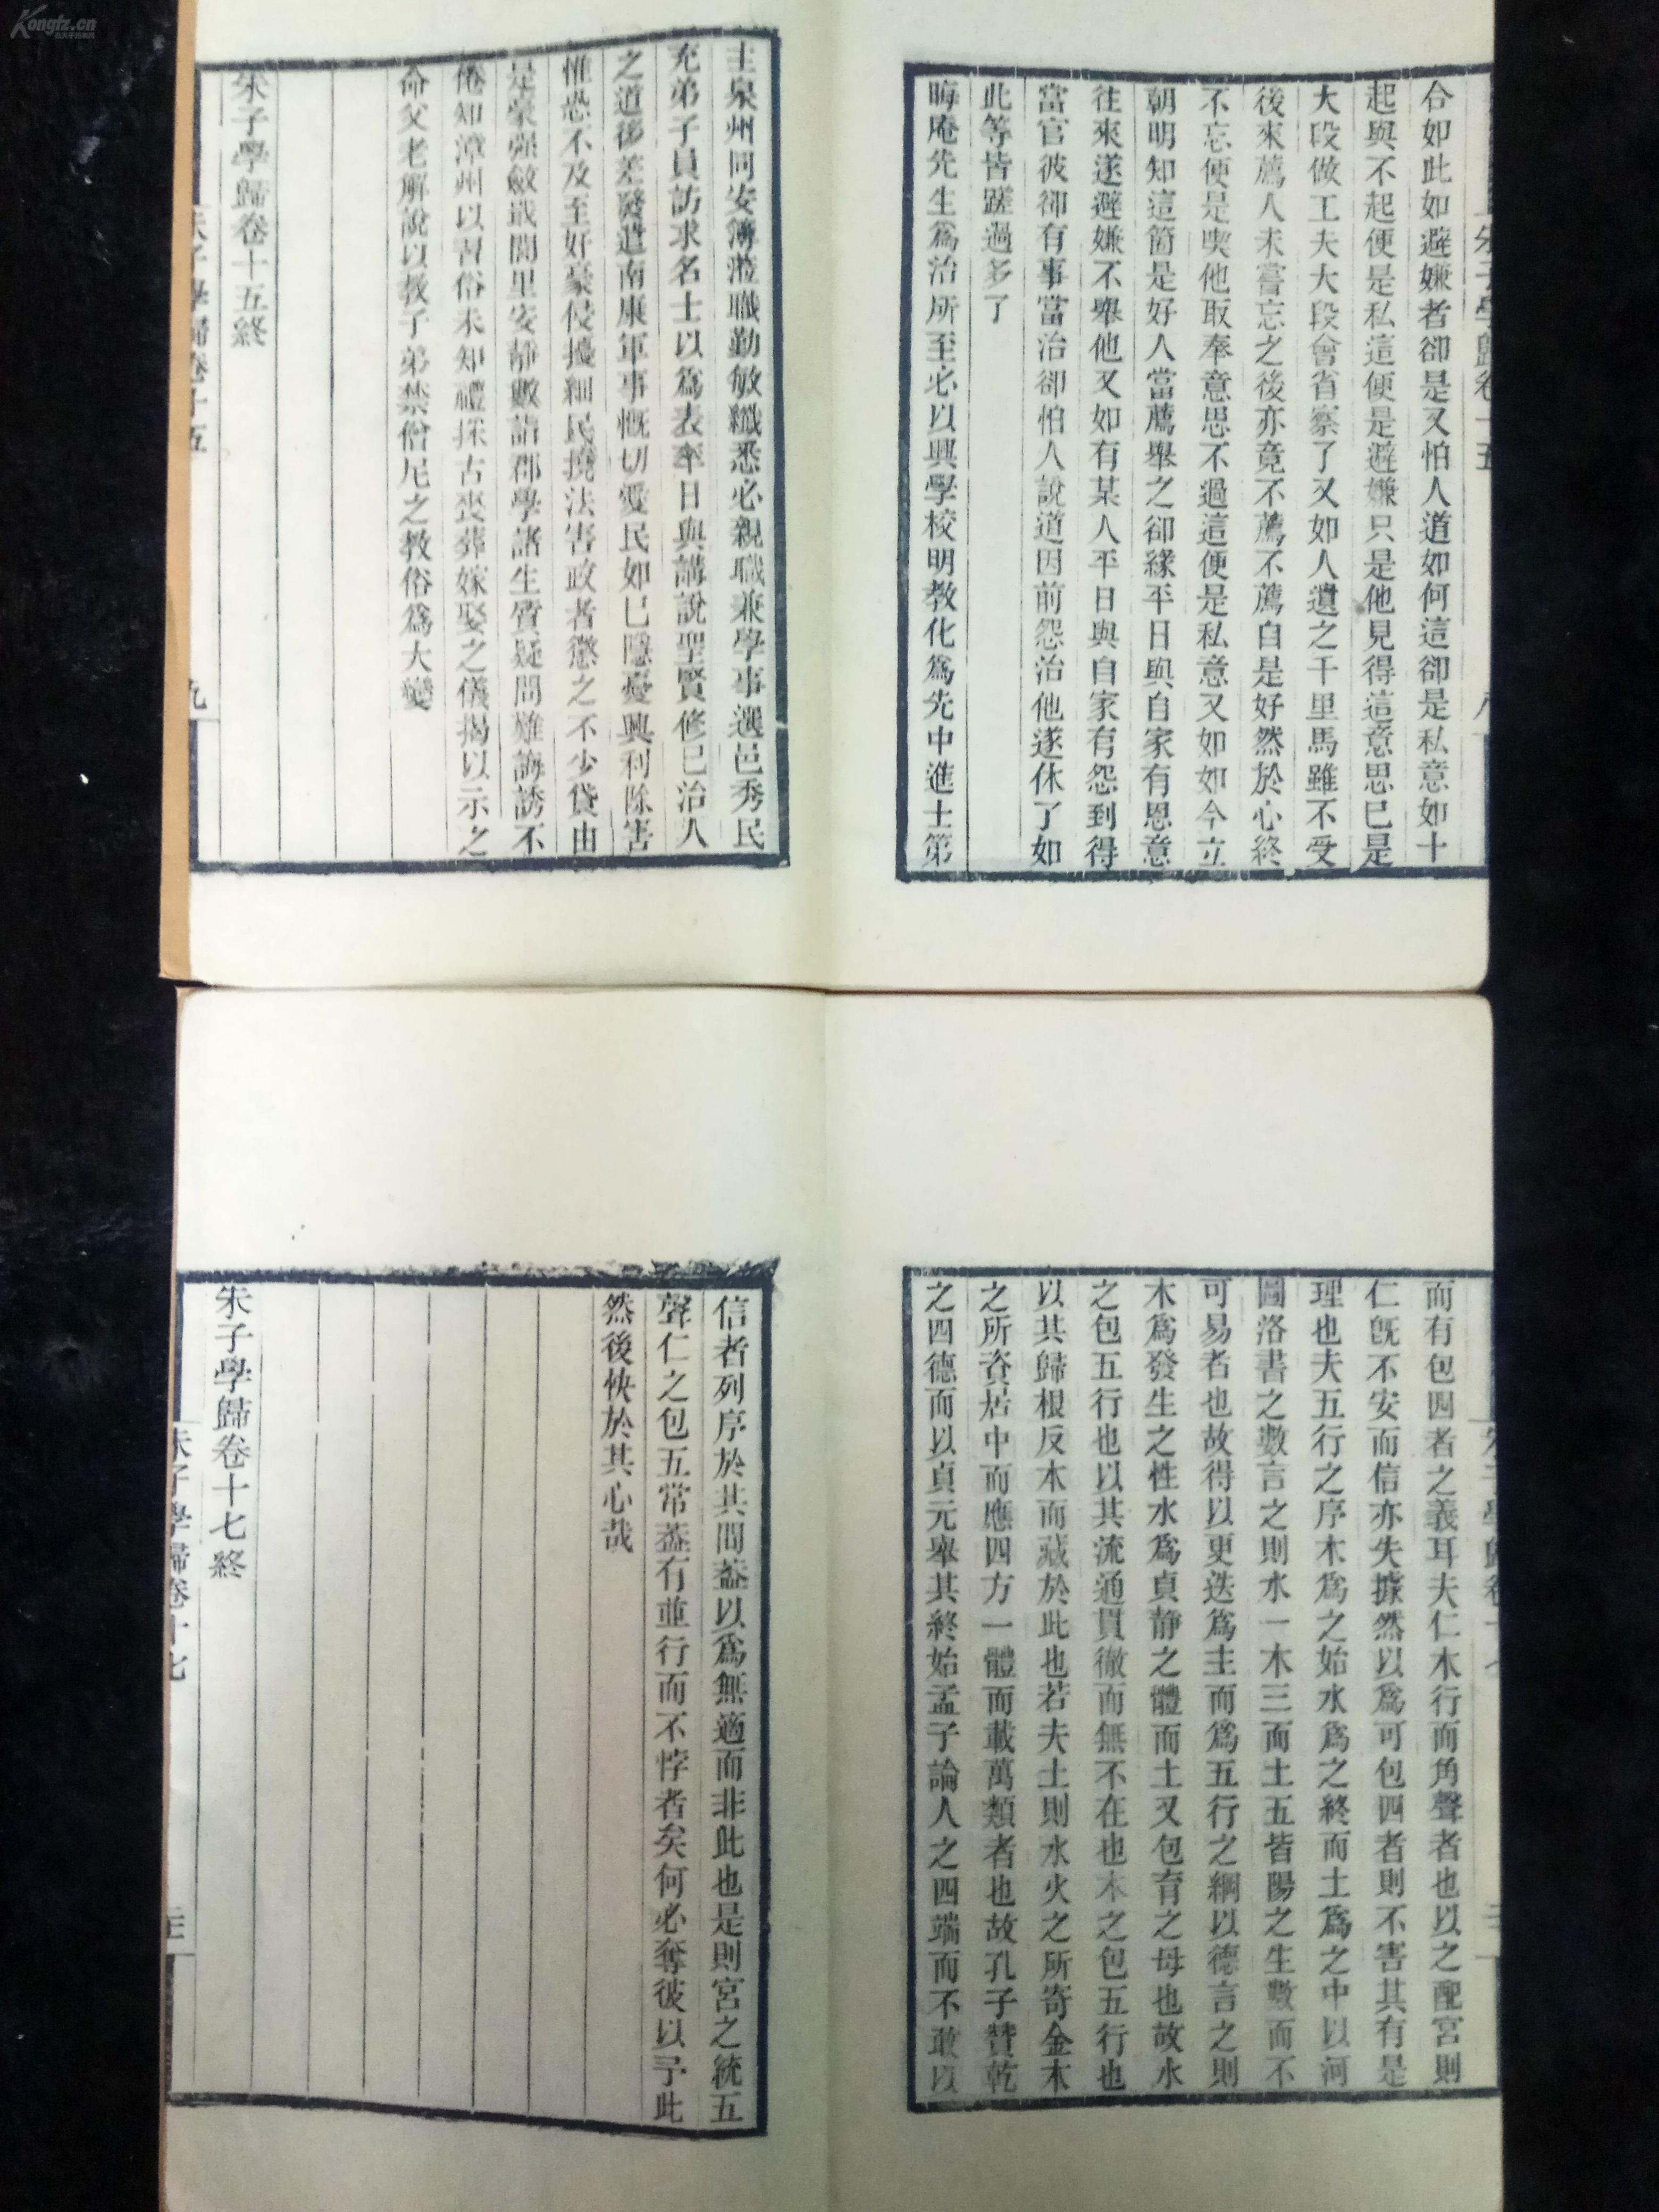 Kongfz.cn
朱子學歸卷十五
八
合如此如避嫌者卻是又怕人道如何這卻是私意如十
起與不起便是私這便是避嫌只是他見得這意思已是
大段做工夫大段會省察了又如人遺之千里馬雖不受
後來薦人未嘗忘之後亦竟不薦不薦自是好然於心終
不忘便是喫他取奉意思不過這便是私意又如如今立
朝明知這箇是好人當薦舉之卻緣平日與自家有恩意
往來遂避嫌不舉他又如有某人平日與自家有怨到得
當官彼卻有事當治卻怕人說道因前怨治他遂休了如
此等皆蹉過多了
晦庵先生為治所至必以興學校明教化為先中進士第
主泉州同安簿涖職勤敏纖悉必親職兼學事選邑秀民
充弟子員訪求名士以為表率日與講說聖賢修已治人
之道後差發遣南康軍事慨切愛民如已隱憂興利除害
惟恐不及至奸豪侵擾細民撓法害政者懲之不少貸由
是豪强斂戢閭里安靜數詣郡學諸生質疑問難誨誘不
倦知漳州以習俗未知禮採古喪葬嫁娶之儀揭以示之
命父老解說以教子弟禁僧尼之教俗為大變
朱子學歸卷十五終
朱子學歸卷十五
九
朱子學歸卷十七
而有包四者之義耳夫仁木行而角聲者也以之配宮則
仁旣不安而信亦失據然以為可包四者則不害其有是
理也夫五行之序木為之始水為之終而土為之中以河
圖洛書之數言之則水一木三而土五皆陽之生數而不
可易者也故得以更迭為主而為五行之綱以德言之則
木為發生之性水為貞静之體而土又包育之母也故水
之包五行也以其流通貫徹而無不在也木之包五行也
以其歸根反本而藏於此也若夫土則水火之所寄金木
之所資居中而應四方一體而載萬類者也故孔子贊乾
之四德而以貞元舉其終始孟子論人之四端而不敢以
信者列序於其間葢以為無適而非此也是則宮之統五
聲仁之包五常葢有並行而不悖者矣何必奪彼以予此
然後快於其心哉
朱子學歸卷十七終
朱子學歸卷十七